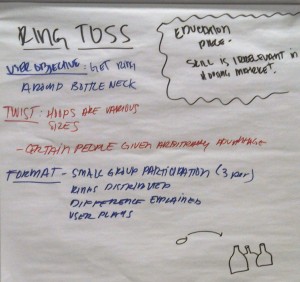 RING TOSS
USER OBJECTIVE: GET RING
AROUND BOTTLE NECK
TWIST: HOOPS ARE VARIOUS
SIZES
- CERTAIN PEOPLE GIVEN ARBITRARY ADVANTAGE
FORMAT - SMALL GROUP PARTICIPATION (3 per)
RINGS DISTRIBUTED
DIFFERENCE EXPLAINED
USER PLAYS
SKILL IS IRRELEVANT IN
HOUSING MARKET.